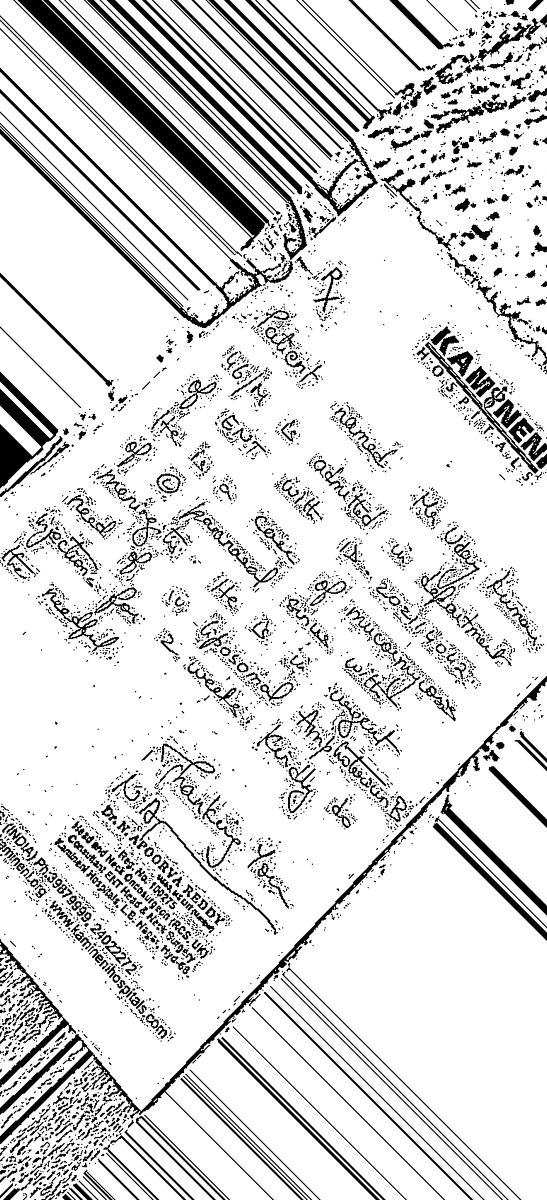 KAMINENI
HOSPITALS
Rx
Patient named Mr Uday Kumar
46/M is admitted in department
of ENT with is 202114042
He is a case of mucormycosis
of paranasal sinus with
meningitis. He is in urgent
need of iv liposomal Amphotericin B
injections for 2 weeks. Kindly do
the needful
Thanking You
Dr. N. APOORVA REDDY
Reg. No.
Head and Neck Oncosurgeon (RCS, UK)
Consultant ENT Head & Neck Surgery
Kamineni Hospitals, L.B. Nagar, Hyd-68.
(INDIA) Ph:39879999, 24022272
www.kaminenihospitals.com